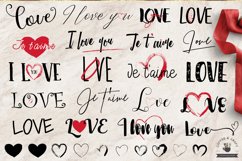 Love I love you LOVE LOVE
Je t'aime I love you Je t'aime Love
I LOVE LOVE Je t'aime LOVE
LOVE Je t'aime Love LOVE
LOVE LOVE I love you Love